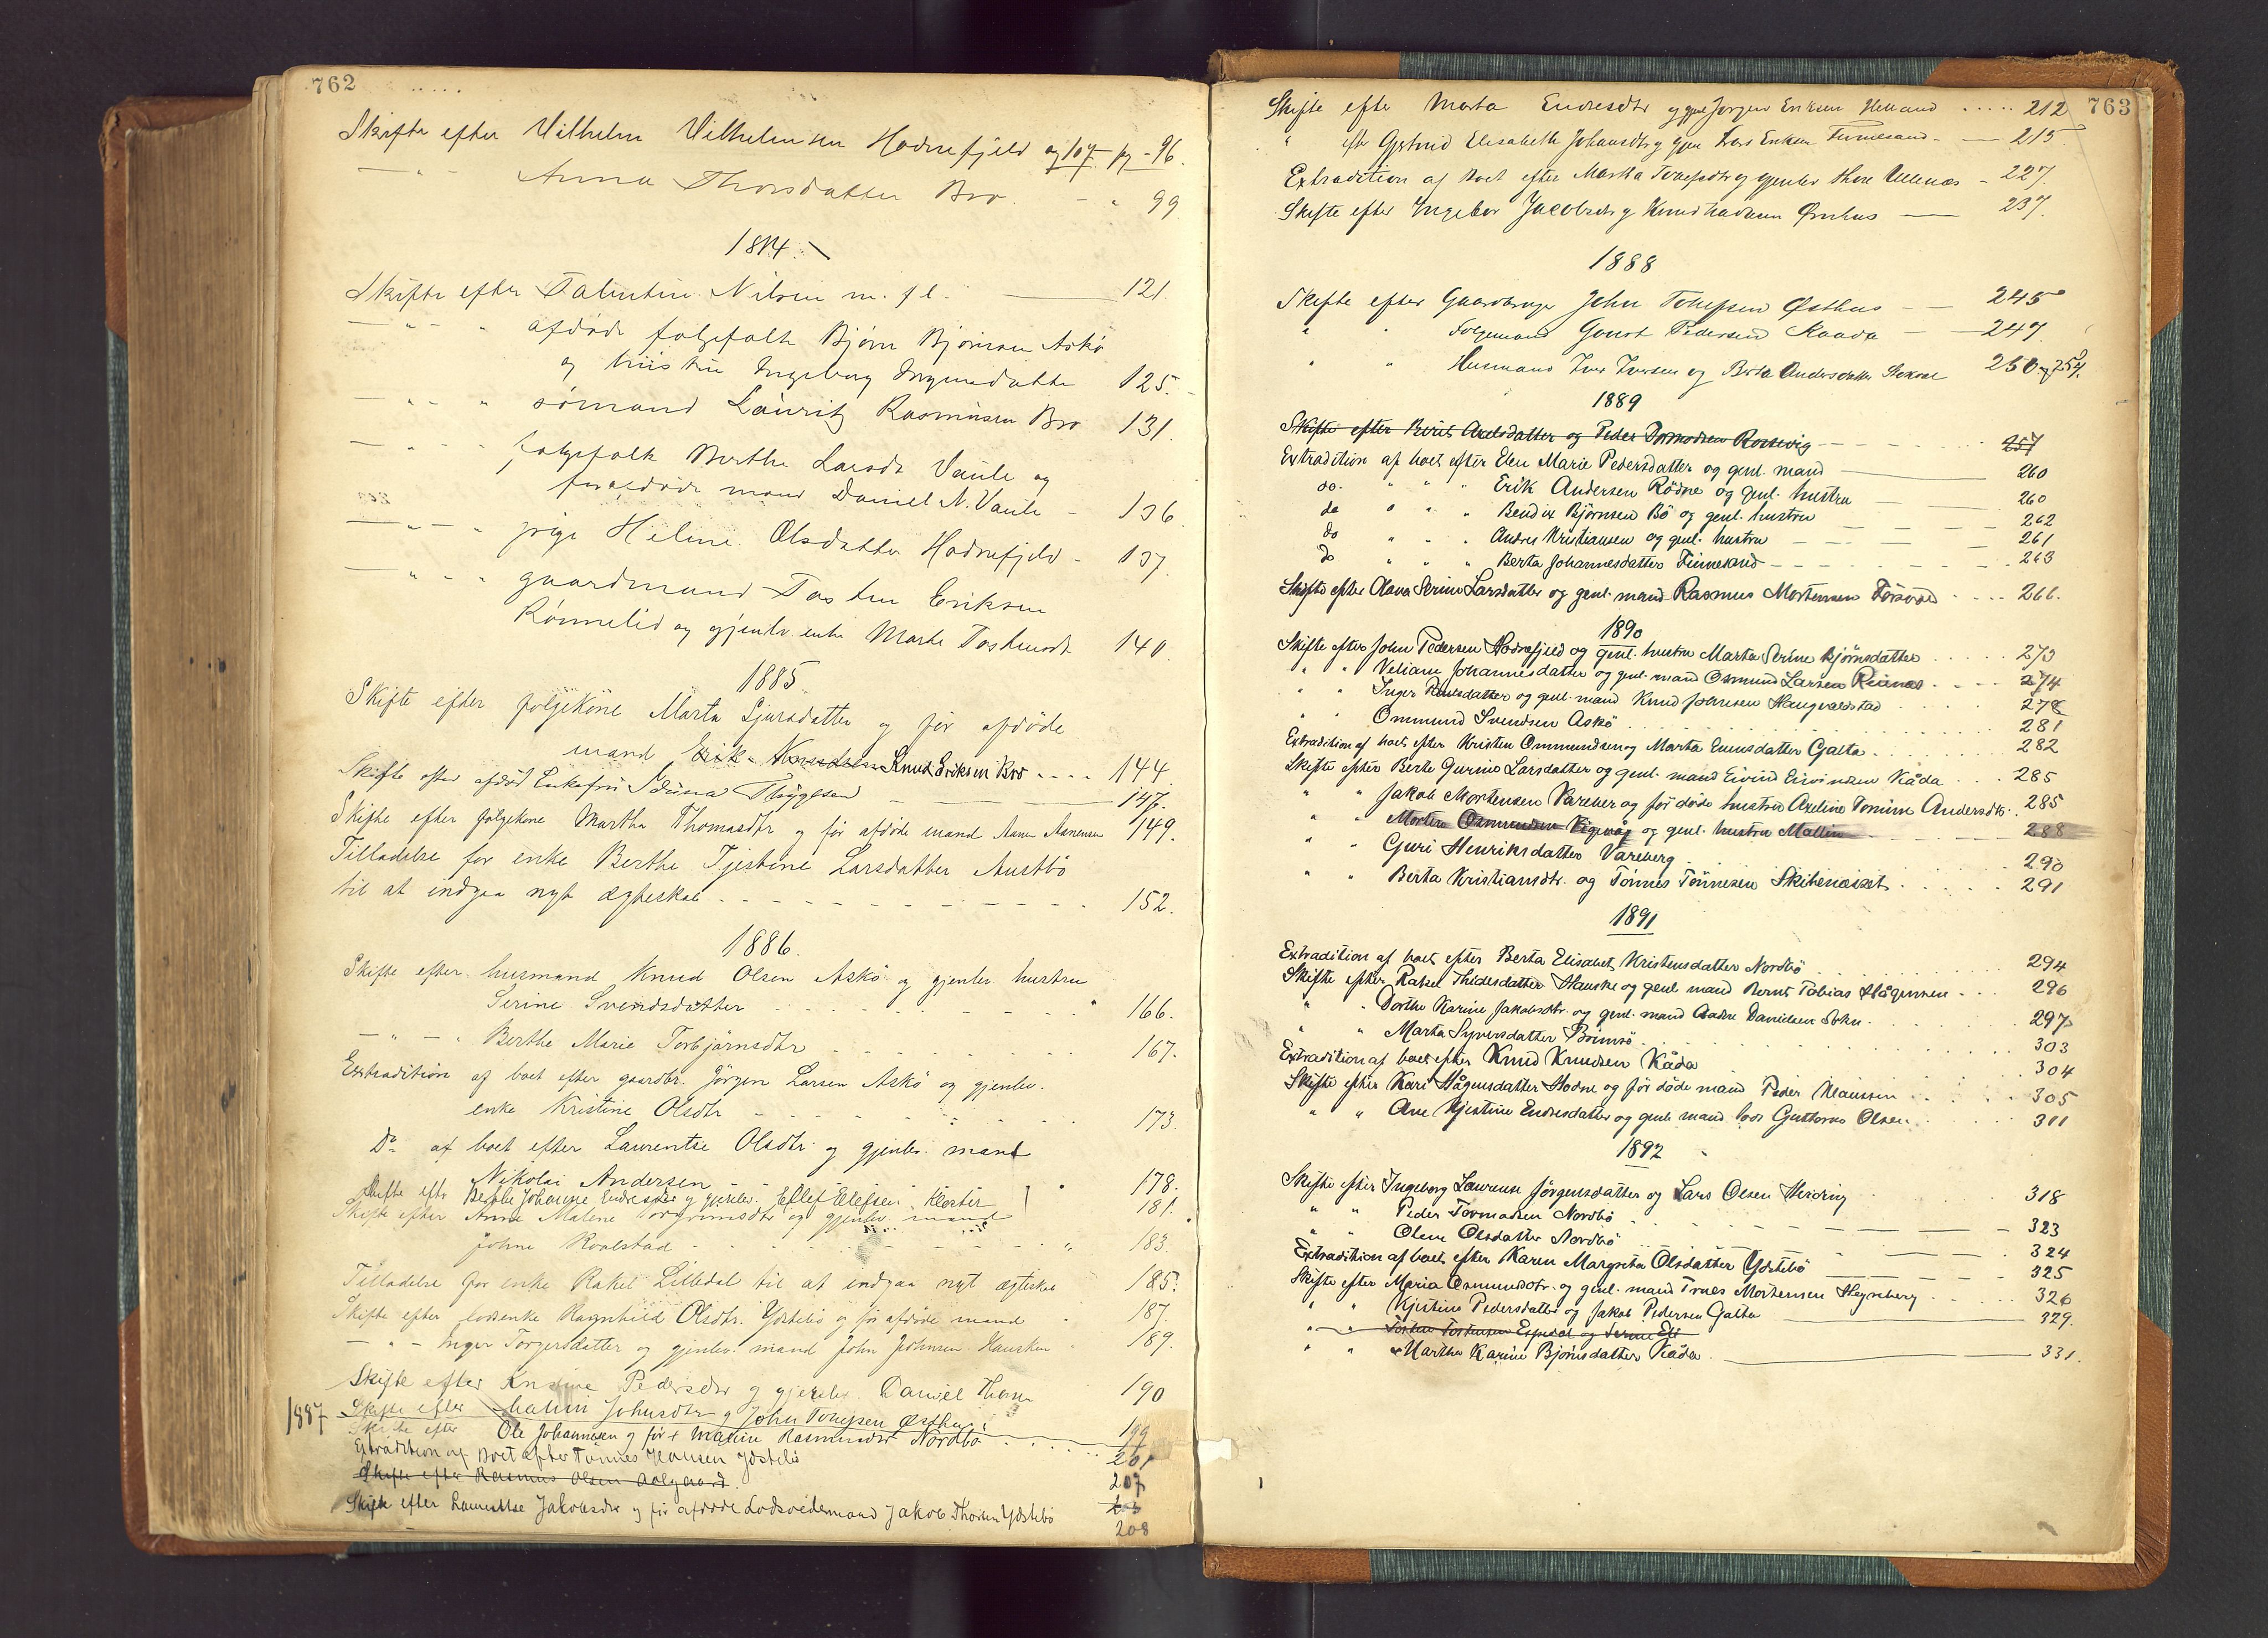 762
Skifte efter Vilhelm Vilhelmsen Hodnefjeld og 107 pg - 96.
— " - Anna Thorsdatter Bro. - " 99
1884.
Skifte efter Valentin Nilsen m. fl. 121.
— " - " afdøde folgefolk Bjørn Bjørnsen Askø
og hustru Ingeborg 125.
— " - " sømand Lauritz Rasmussen Bro 131.
— " - " folgefolk Berthe Larsdt Vaule og
forafdøde mand Daniel N. Vaule - 136.
— " - " pige Heline Olsdatter Hodnefjeld - 137.
— " - " gaardmand Tosten Eriksen
Rønnelid og gjenlv. enke Marte Tostensdt. 140.
1885.
Skifte efter folgekone Marta Sjursdatter og før afdøde
mand Erik Knudsen Knud Eriksen Bro .... 144
Skifte efter afdød Enkefru Iduna Thygesen 147.
Skifte efter folgekone Martha Thomasdtr og før afdøde mand Aanen Aanensen 149.
Tilladelse for enke Berthe Tjestine Larsdatter Austbö
til at indgaa nyt ægteskab 152.
1886.
Skifte efter husmand Knud Olsen Askö og gjenlev hustru
Serine Svendsdatter 166.
— " - " Berthe Marie Torbjörnsdtr 167.
Extradition af boet efter gaardbr. Jörgen Larsen Askö og gjenlev.
enke Kristine Olsdtr 173.
Do af boet efter Laurentse Olsdtr og gjenlev. mand
Nikolai Andersen 178.
Skifte eftr Berthe Johanne Endresdtr og gjenlev. Ellef Ellefsen Kloster 181.
Skifte efter Anne Malene Torgrimsdtr og gjenlev mand
Johne Roalstad 183.
Tilladelse for enke Rakel Lilledal til at indgaa nyt ægteskab 185.
Skifte efter lodsenke Ragnhild Olsdtr. Ydstebö og før afdøde mand 187.
— " - Inger Torgersdatter og gjenlev. mand John Johnsen Hausken 189.
Skifte efter Pedersdtr og gjenlev. Daniel 190
1887 Skifte efter Malini Johnsdtr og John Tollefsen Østhus 199
Skifte efter Ole Johannesen og før † Malene Rasmusdtr Nordbö 201
Extradition af Boet efter Tönnes Hansen Ydstebö 207
Skifte efter Rasmus Olsen Aolgaard.
Skifte efter Laurentse Jakobsdtr og før afdøde Lodsoldermand Jakob Thorsen Ydstebö 208
763
Skifte efter Marta Endresdtr og gjenl Jørgen Eriksen Helland ..... 212
" eftr Gjertrud Elisabeth Johansdtr og gjen Lars Eriksen Finnesand - 215.
Extradition af Boet efter Martha Tollefsdtr og gjenlev Thore Ullenæs - 227.
Skifte efter Ingebor Jacobsdtr og Knud Ørnhus 237.
1888
Skifte efter Gaardbruger John Tollefsen Østhus 245
" " Folgemand Gourt Pedersen Kaada 247
" " Husmand Iver Iversen og Berta Andersdatter 250 og 254.
1889
Skifte efter Berit Axelsdatter og Peder Dormodsen Rossevig 257
Extradition af boet efter Elen Marie Pedersdatter og genl. mand 260
do. " " " Erik Andersen Rödne og genl. hustru 260
do " " " Bendix Björnsen Bö og genl. hustru 262
do " " " Andres Kristiansen og genl. hustru 261
do " " " Berta Johannesdatter Finnesand 263
Skifte efter Olava Serine Larsdatter og genl. mand Rasmus Mortensen 266.
1890
Skifte efter John Pedersen Hodnefjeld og genl. hustru Marta Serine Bjørnsdatter 273
" " Veliane Johannesdatter og genl. mand Osmund Larsen Reinnes 274
" " Inger Paulsdatter og genl. mand Knud Johnsen Haugvaldstad 278
" " Ommund Svendsen Askö 281
Extradition af boet efter Kristen Ommundsen og Marta Eunisdatter Galta 282
Skifte efter Berte Gurine Larsdatter og genl. mand Eivind Eivindsen Kåda 285
" " Jakob Mortensen Vareberg og før døde hustru Axeline Tomine Andersdtr. 285
" " Morten Osmundsen Vigevåg og genl. hustru Mallin 288
" " Guri Henriksdatter Vareberg 290
" " Berta Kristiansdtr. og Tönnes Tönnesen Skibenæset 291
1891
Extradition af boet efter Berta Elisabet Kristensdatter Nordbö 294
Skifte efter Rakel Thidesdatter Hauske og genl mand Bernt Tobias Håginsen 296
" " Dorthe Karine Jakobsdtr. og genl. mand Aadne Danielsen Sokn 297
" " Marta Syversdatter Brimsö 303
Extradition af boet efter Knud Knudsen Kåda 304
Skifte efter Kari Hågensdatter Hodne og før døde mand Peder Klausen 305
" " Ane Kjestine Endresdatter og genl. mand lods Guttorm Olsen 311
1892
Skifte efter Ingeborg Laurense Jörgensdatter og Lars Olsen Meidring 318
" " Peder Tormodsen Nordbö 323
" " Olene Olsdatter Nordbö 324
Extradition af boet efter Karen Margreta Olsdatter Ydstebö 325
Skifte efter Maria Osmundsdtr. og genl. mand Truls Mortensen Høyneberg 326
" " Kjistine Pedersdatter og Jakob Pedersen Galta 329.
" " Tosten Tostensen Espedal og Serine Eli
" " Martha Karine Bjørnsdatter Kåda 331.